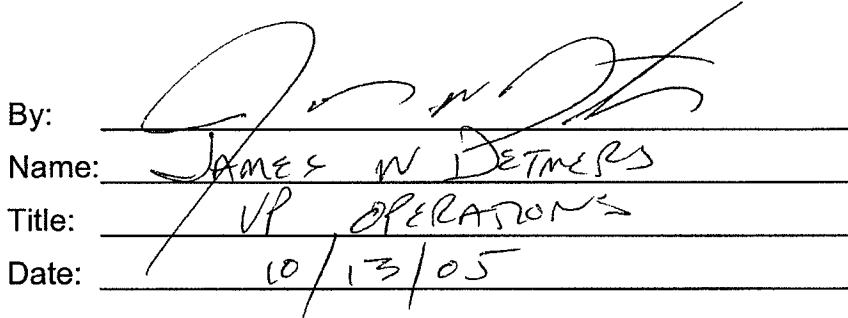 By:
Name: JAMES W DETMERS
Title: VP OPERATIONS
Date: 10/13/05